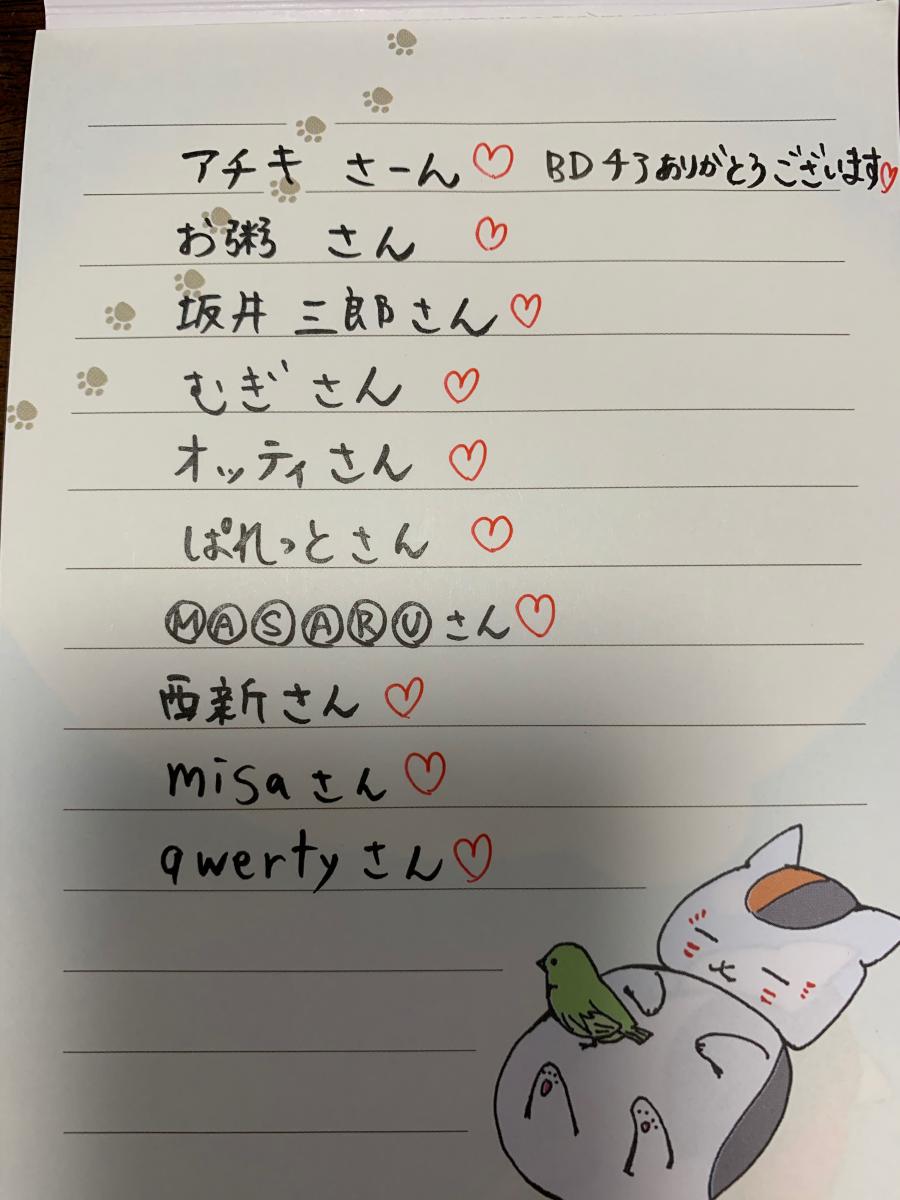 アチキ さーん♡ BDチアありがとうございます♡
お粥 さん ♡
坂井 三郎さん♡
むぎさん ♡
オッティさん ♡
ぱれっとさん ♡
ⓂⒶⓈⒶⓇⓊさん♡
西新さん ♡
misaさん♡
qwertyさん♡